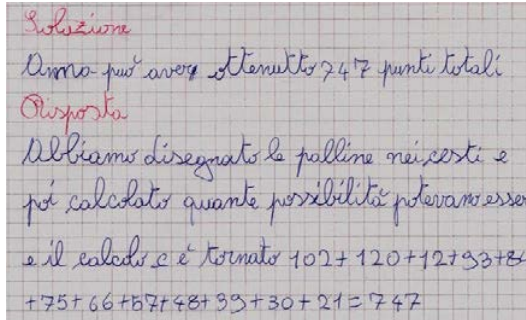 Soluzione
Anna può aver ottenutto 747 punti totali
Risposta
Abbiamo disegnato le palline nei cesti e
poi calcolato quante possibilità potevano esser
e il calcolo c é tornato 102+120+12+93+8
+75+66+57+48+39+30+21=747